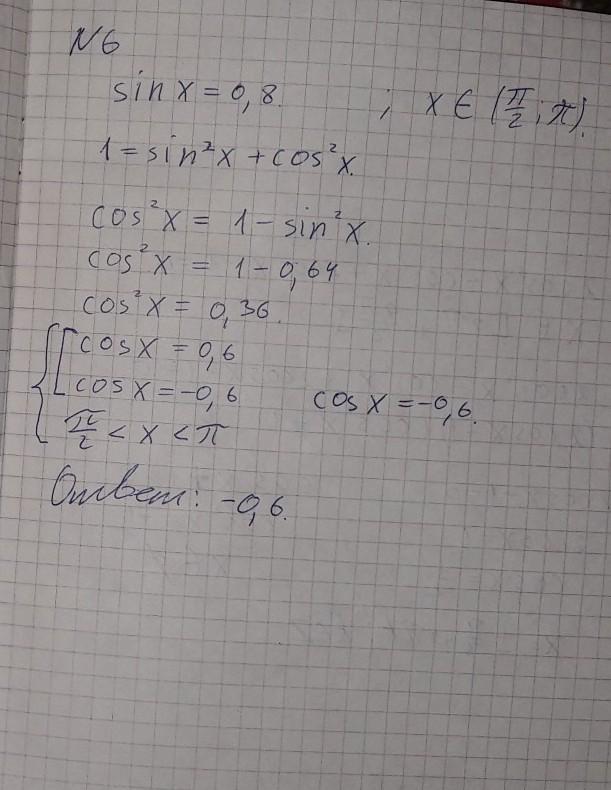 N6
sin x = 0,8. ; x ∈ (π/2; π).
1 = sin²x + cos²x.
cos²x = 1 - sin²x.
cos²x = 1 - 0,64
cos²x = 0,36.
{ [ cos x = 0,6
cos x = -0,6 cos x = -0,6.
π/2 < x < π
Ответ: -0,6.